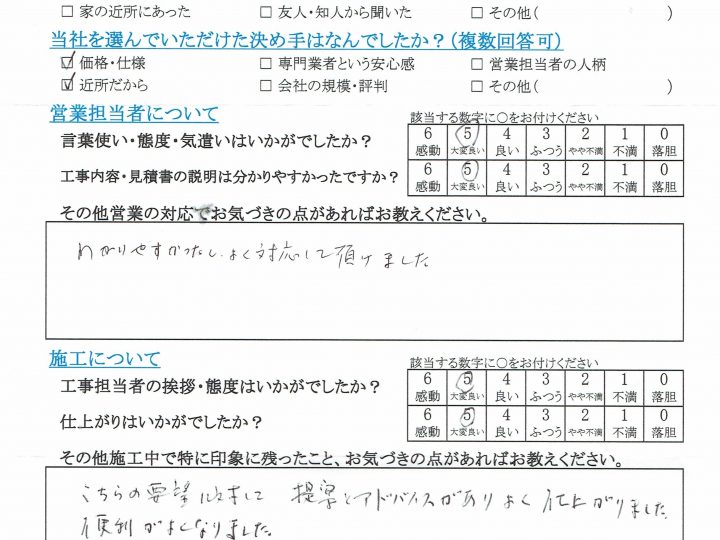 □ 家の近所にあった □ 友人・知人から聞いた □ その他( )
当社を選んでいただけた決め手はなんでしたか?(複数回答可)
☑ 価格・仕様 □ 専門業者という安心感 □ 営業担当者の人柄
☑ 近所だから □ 会社の規模・評判 □ その他( )
営業担当者について
該当する数字に○をお付けください
言葉使い・態度・気遣いはいかがでしたか?
6 5 4 3 2 1 0
感動 大変良い 良い ふつう やや不満 不満 落胆
工事内容・見積書の説明は分かりやすかったですか?
6 5 4 3 2 1 0
感動 大変良い 良い ふつう やや不満 不満 落胆
その他営業の対応でお気づきの点があればお教えください。
わかりやすかったし、よく対応して頂けました
施工について
該当する数字に○をお付けください
工事担当者の挨拶・態度はいかがでしたか?
6 5 4 3 2 1 0
感動 大変良い 良い ふつう やや不満 不満 落胆
仕上がりはいかがでしたか?
6 5 4 3 2 1 0
感動 大変良い 良い ふつう やや不満 不満 落胆
その他施工中で特に印象に残ったこと、お気づきの点があればお教えください。
こちらの要望に対して 提案とアドバイスがありよく仕上がりました。
便利がよくなりました。